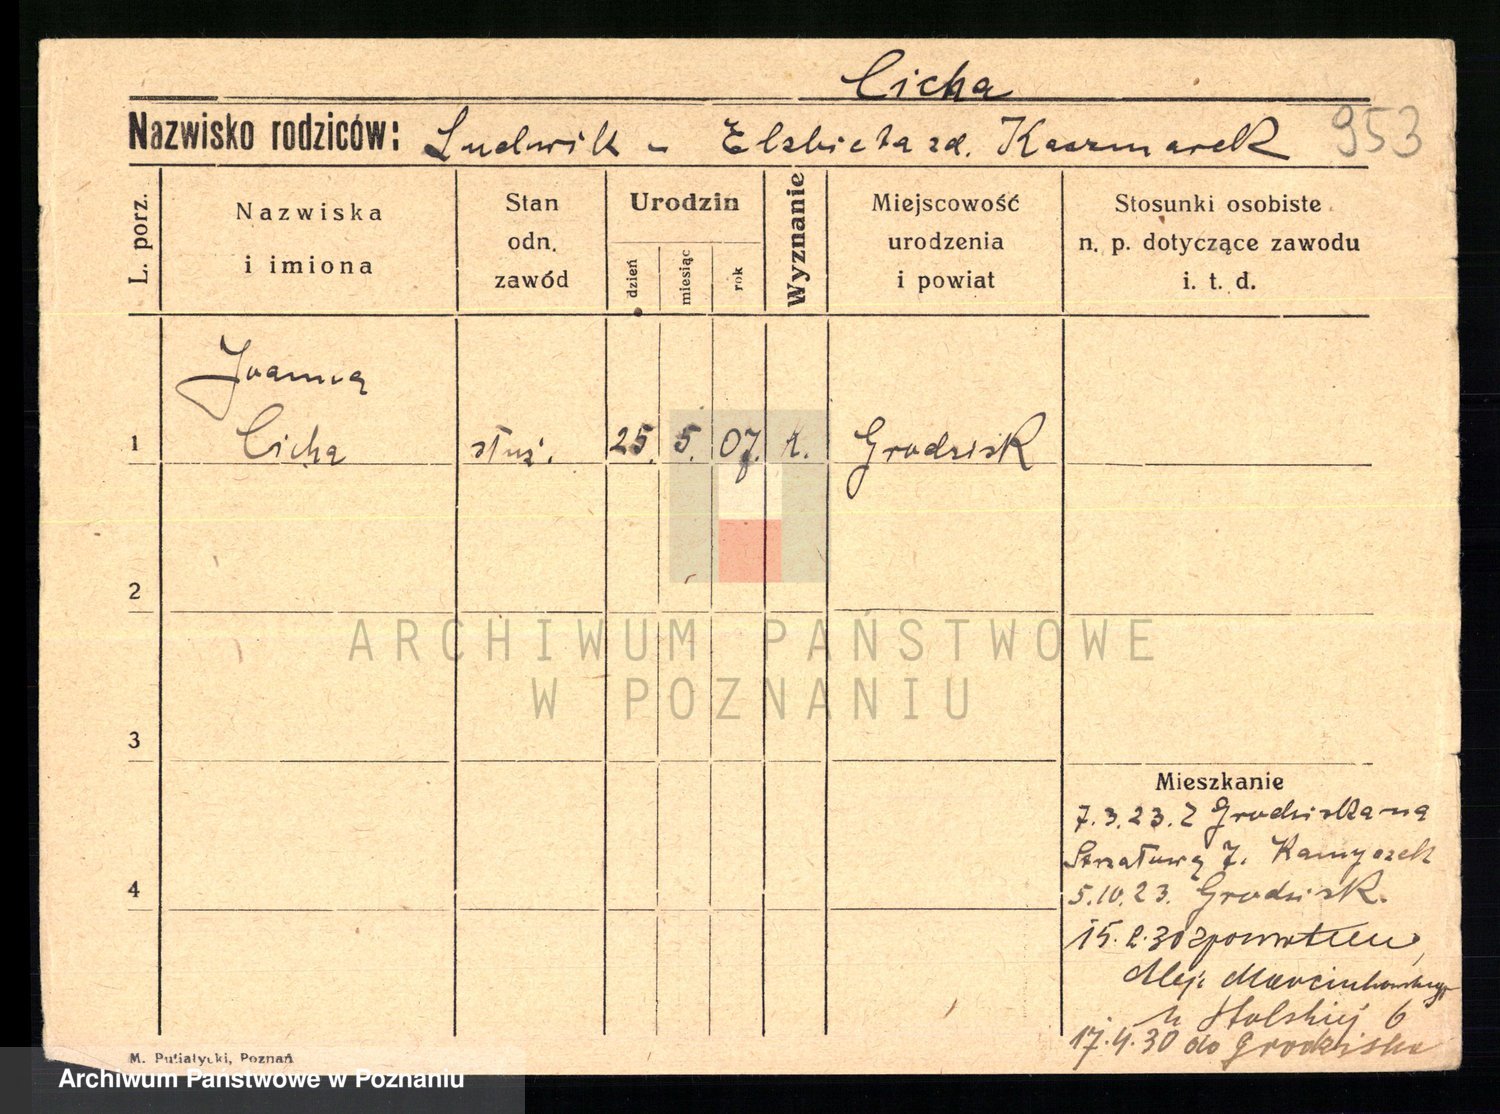 Cicha
Nazwisko rodziców: Ludwik - Elżbieta zd. Kaczmarek 953
L. porz.
Nazwiska
i imiona
Stan
odn.
zawód
Urodzin
dzień
miesiąc
rok
Wyznanie
Miejscowość
urodzenia
i powiat
Stosunki osobiste
n. p. dotyczące zawodu
i. t. d.
Joanna
1 Cicha służ. 25. 5. 07. k. Grodzisk
2
ARCHIWUM PAŃSTWOWE
W POZNANIU
3
Mieszkanie
7.3.23. z Grodziska na
Strzałową 7. Kamyszek
5.10.23. Grodzisk.
4
15.2.30 z powrotem,
Alej. Marcinkowskiego
u Stolskiej 6
17.4.30 do Grodziska
M. Putiatycki, Poznań
Archiwum Państwowe w Poznaniu